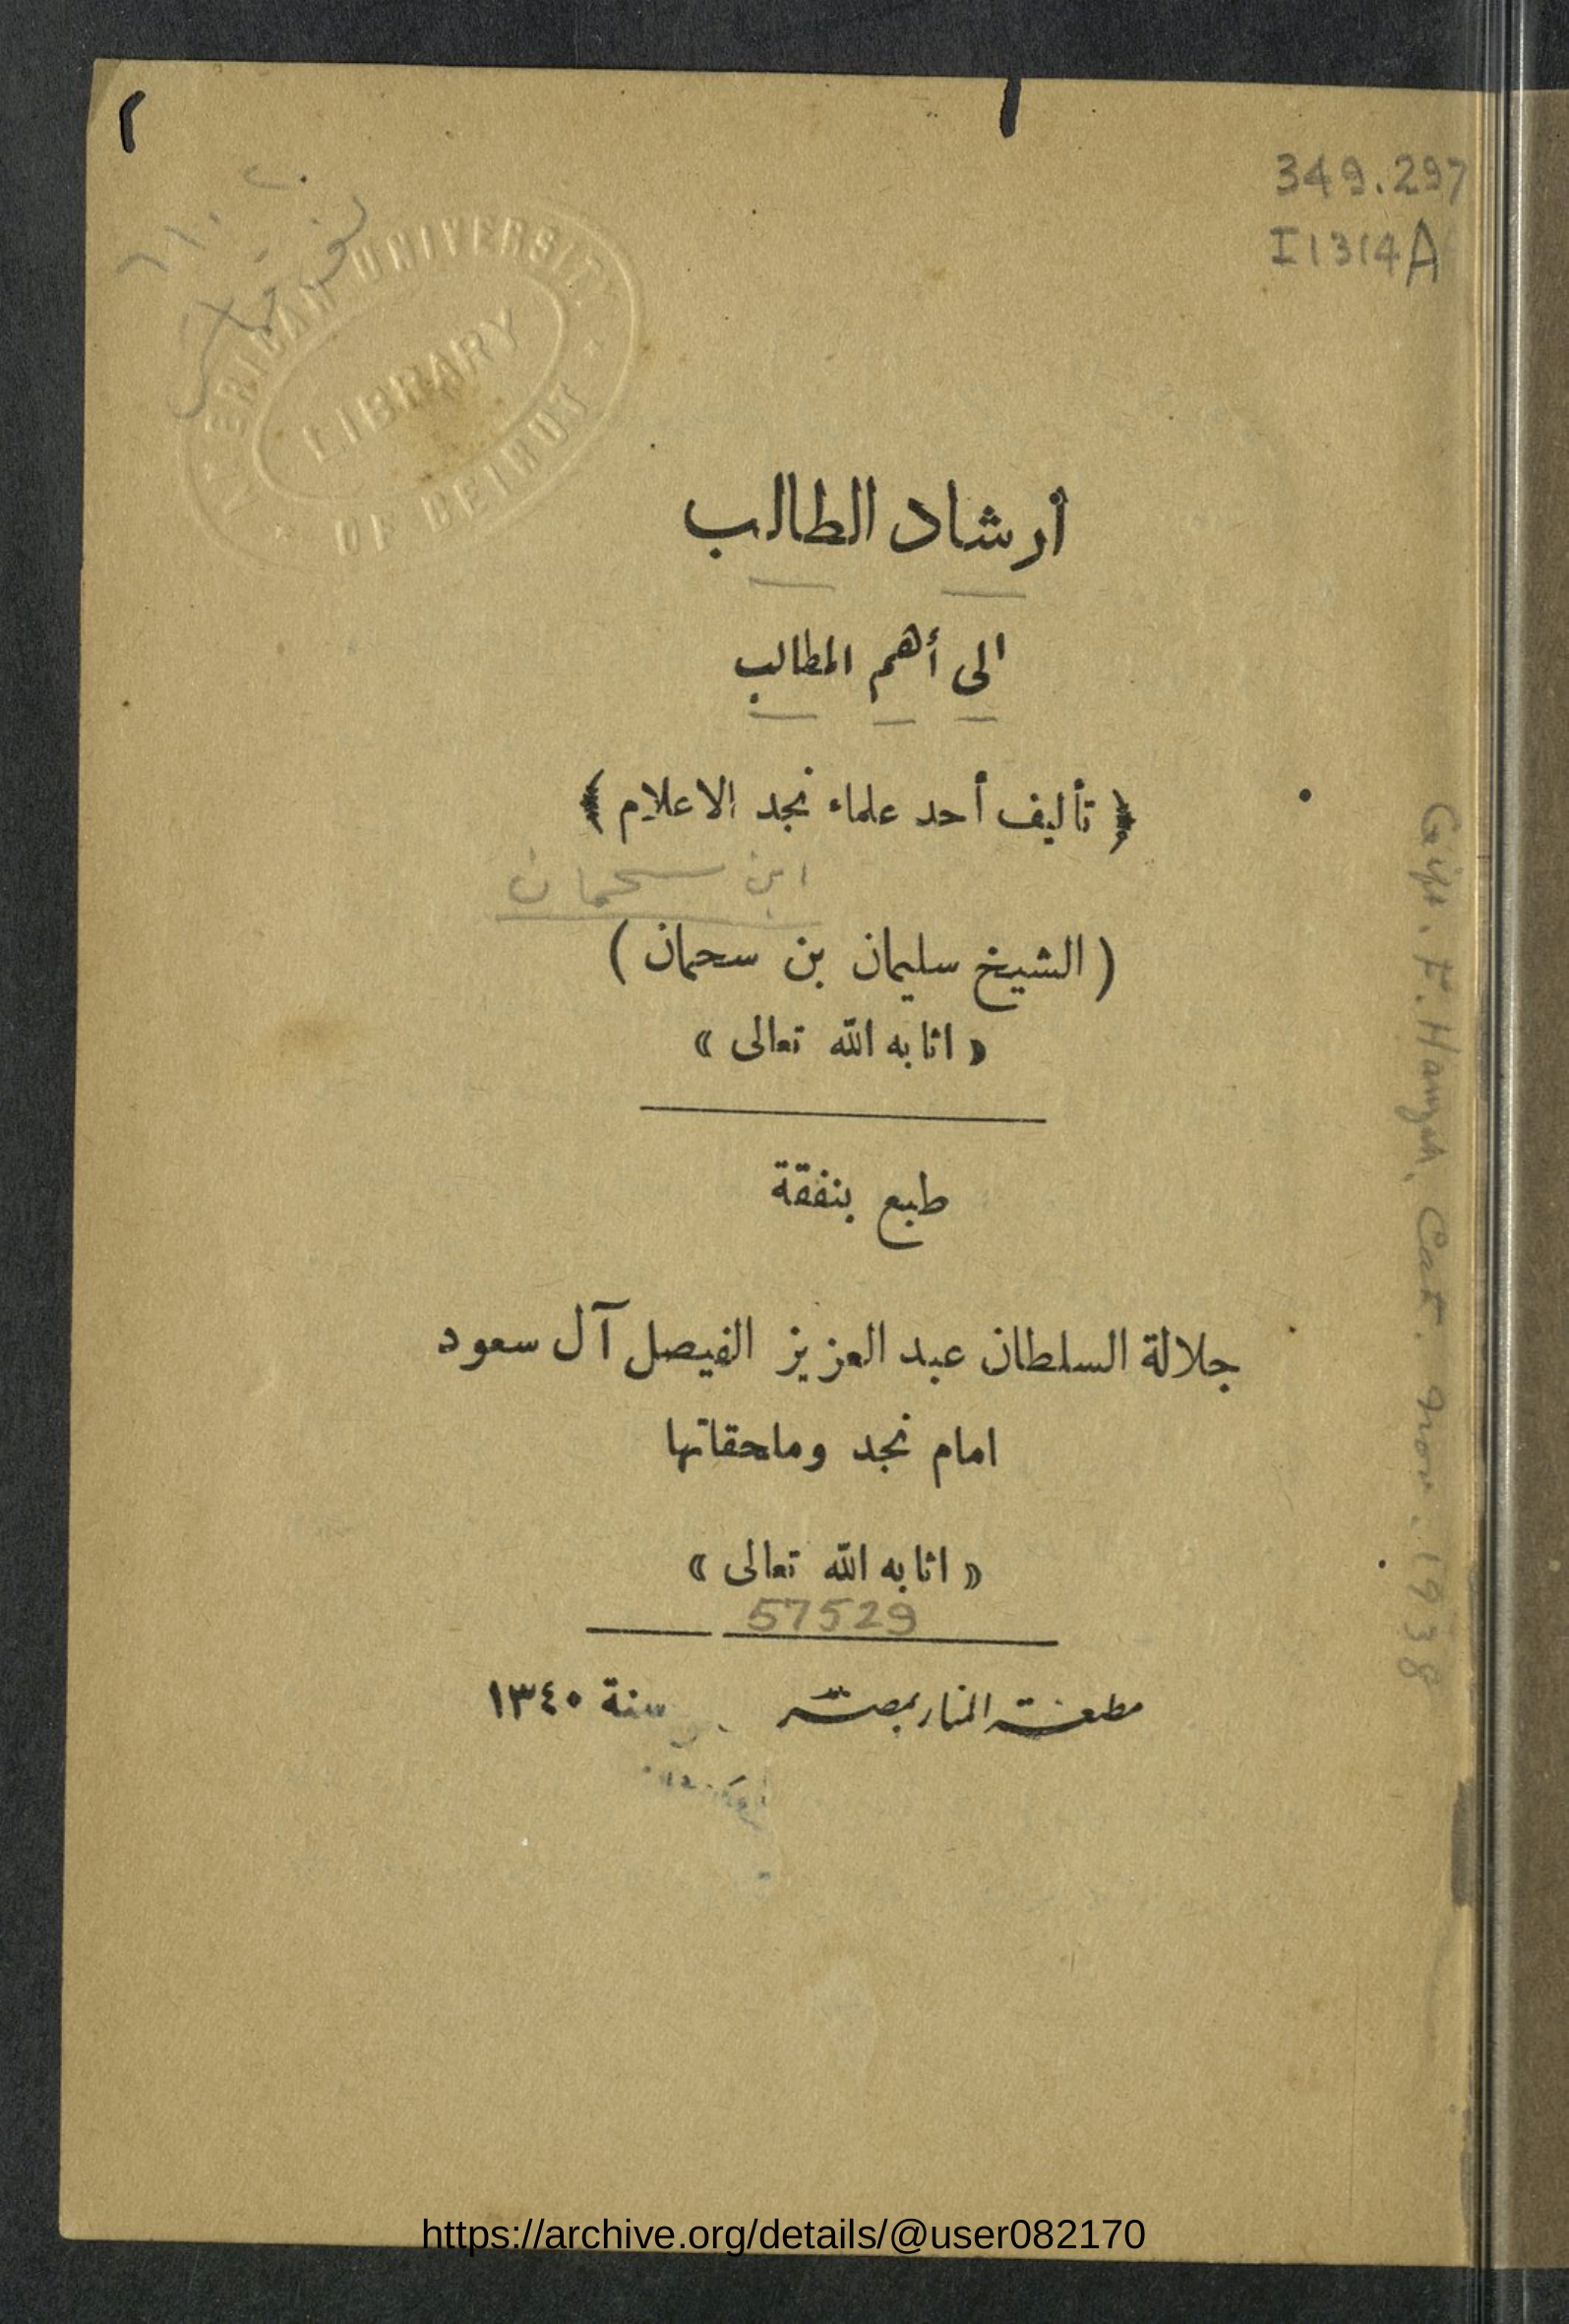 349.297
I1314A
AMERICAN UNIVERSITY
LIBRARY
OF BEIRUT
أرشاد الطالب
الى أهم المطالب
﴿ تأليف أحد علماء نجد الاعلام ﴾
ابن سحمان
( الشيخ سليمان بن سحمان )
« اثابه الله تعالى »
طبع بنفقة
جلالة السلطان عبد العزيز الفيصل آل سعود
امام نجد وملحقاتها
« اثابه الله تعالى »
57529
مطبعة المنار بمصر سنة ١٣٤٠
Gift. F. Hamzah, Cat. Nov. 1938
https://archive.org/details/@user082170